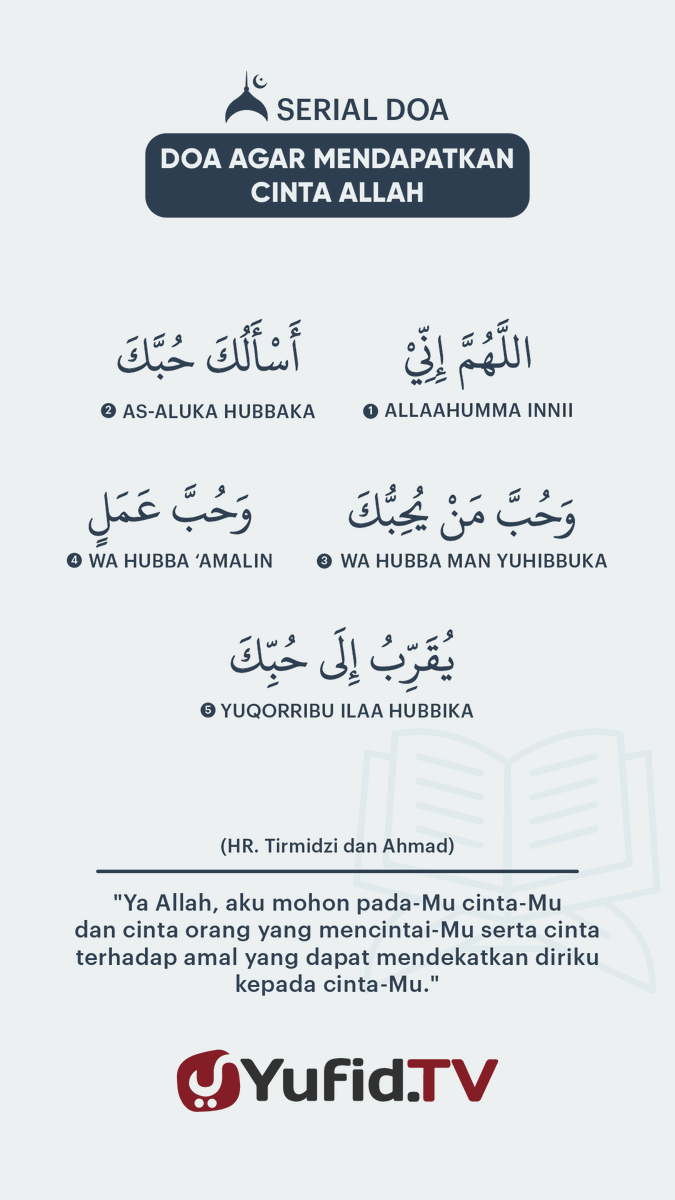 SERIAL DOA
DOA AGAR MENDAPATKAN
CINTA ALLAH
اللَّهُمَّ إِنِّيْ
❶ ALLAAHUMMA INNII
أَسْأَلُكَ حُبَّكَ
❷ AS-ALUKA HUBBAKA
وَحُبَّ مَنْ يُحِبُّكَ
❸ WA HUBBA MAN YUHIBBUKA
وَحُبَّ عَمَلٍ
❹ WA HUBBA ‘AMALIN
يُقَرِّبُ إِلَى حُبِّكَ
❺ YUQORRIBU ILAA HUBBIKA
(HR. Tirmidzi dan Ahmad)
"Ya Allah, aku mohon pada-Mu cinta-Mu
dan cinta orang yang mencintai-Mu serta cinta
terhadap amal yang dapat mendekatkan diriku
kepada cinta-Mu."
Yufid.TV